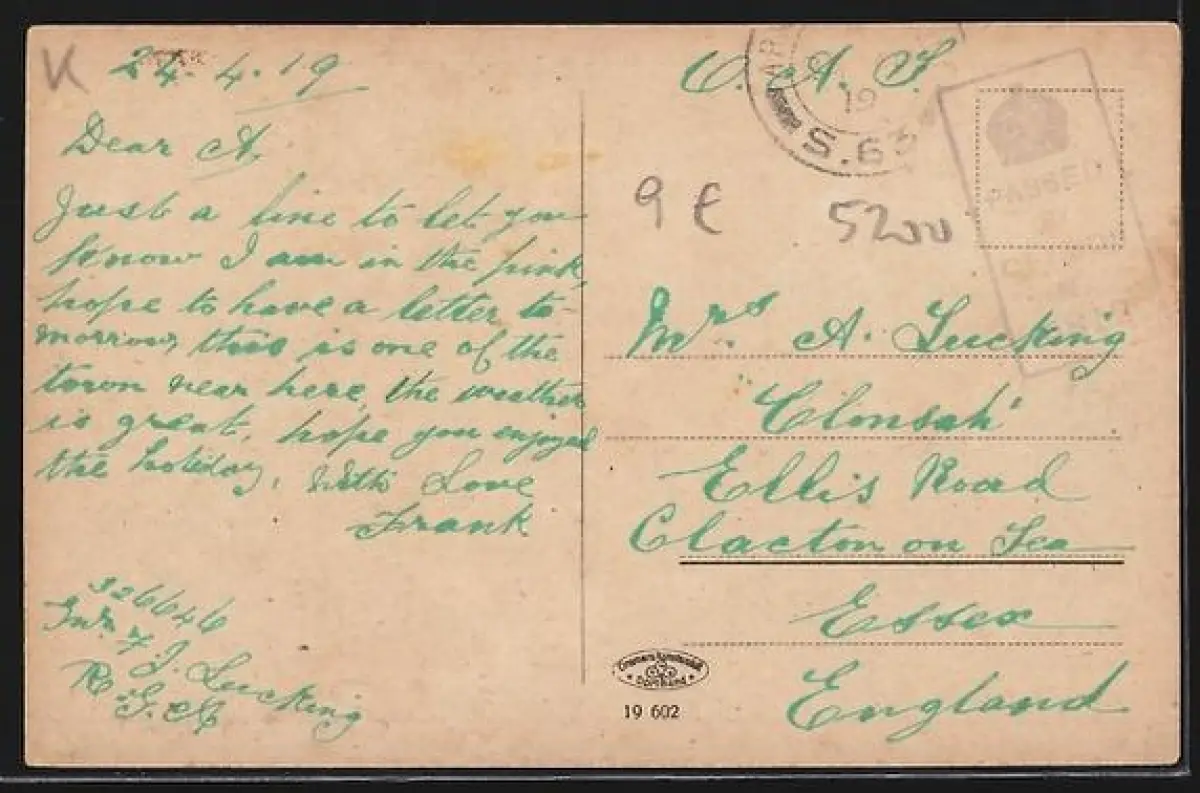 K
24.4.19
Dear A.
Just a line to let you
know I am in the pink,
hope to have a letter to-
morrow, this is one of the
town near here, the weather
is great, hope you enjoyed
the holiday, With Love
Frank
326646
F. J. Lucking
R.G.A
O. A. S
AP
19
S.63
PASSED
9 €
5200
Mrs A. Lucking
Clonsah'
Ellis Road
Clacton on Sea
Essex
England
Dortmund
19 602